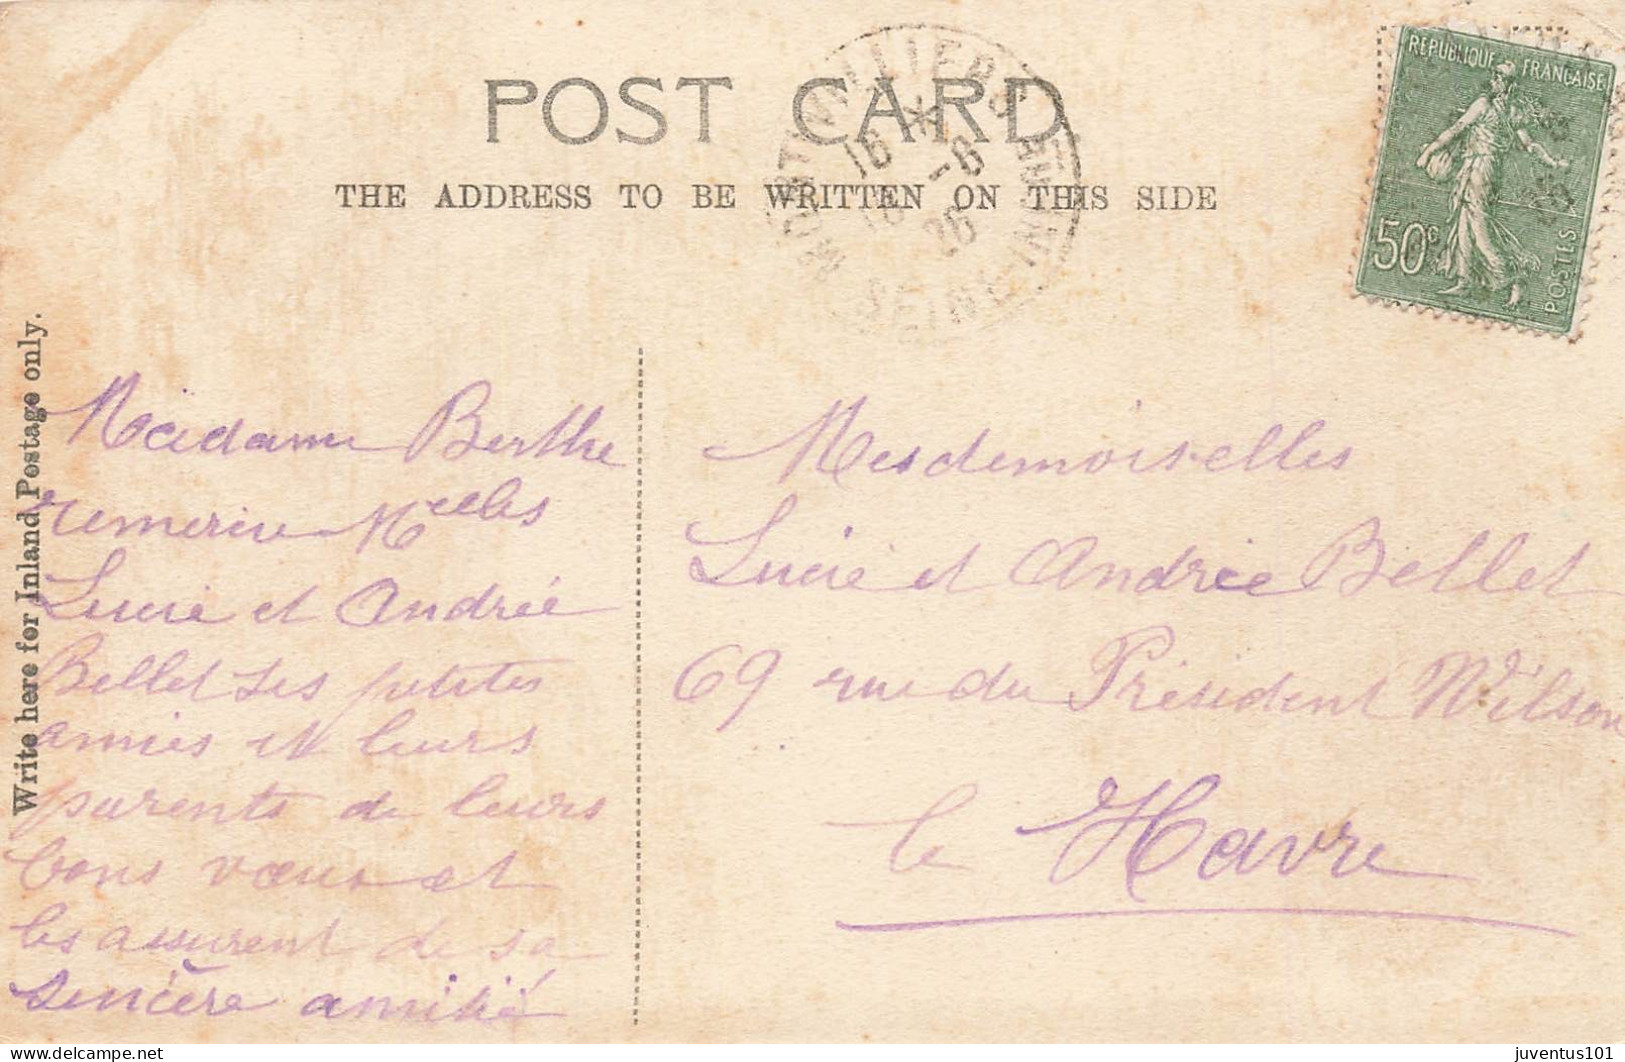 POST CARD
THE ADDRESS TO BE WRITTEN ON THIS SIDE
MONTIVILLIERS
SEINE INF
16 * -6
26
REPUBLIQUE FRANÇAISE
50c
POSTES
Write here for Inland Postage only.
Madame Berthe
remercie Melles
Lucie et Andrée
Bellet ses petites
amies et leurs
parents de leurs
bons vœux et
les assurent de sa
sincère amitié
Mesdemoiselles
Lucie et Andrée Bellet
69 rue du Président Wilson
le Havre
juventus101